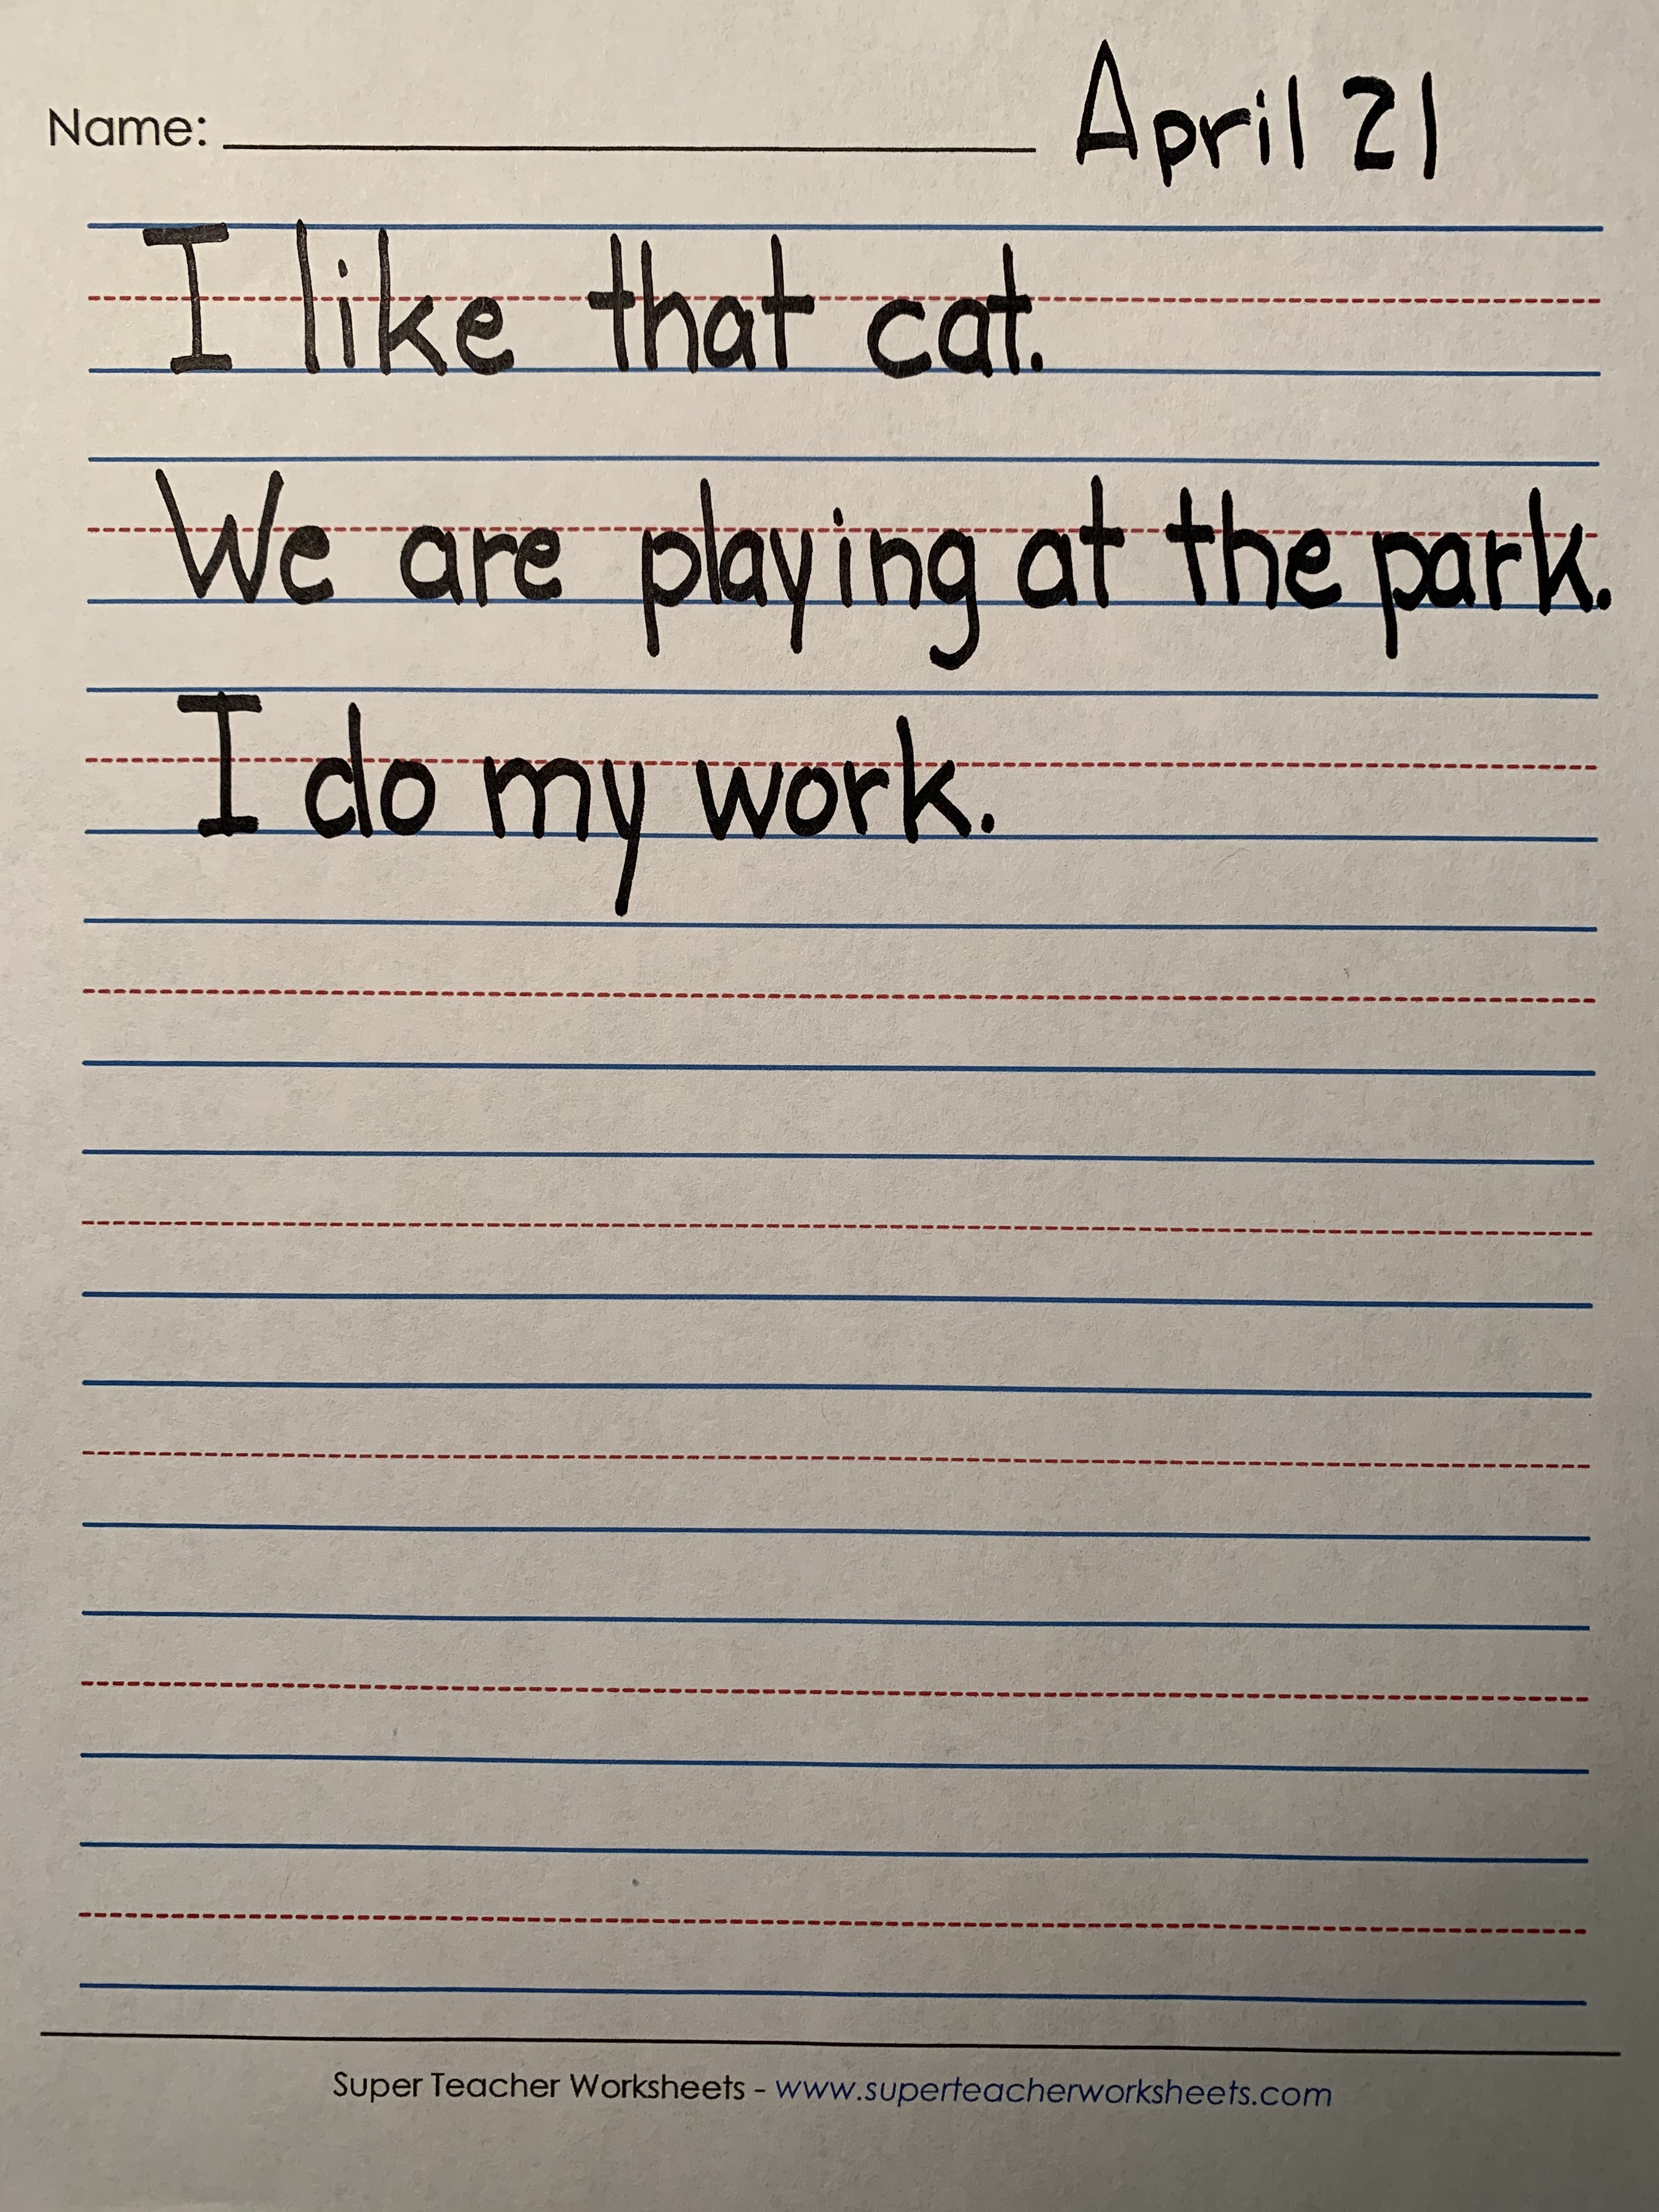 Name: April 21
I like that cat.
We are playing at the park.
I do my work.
Super Teacher Worksheets - www.superteacherworksheets.com